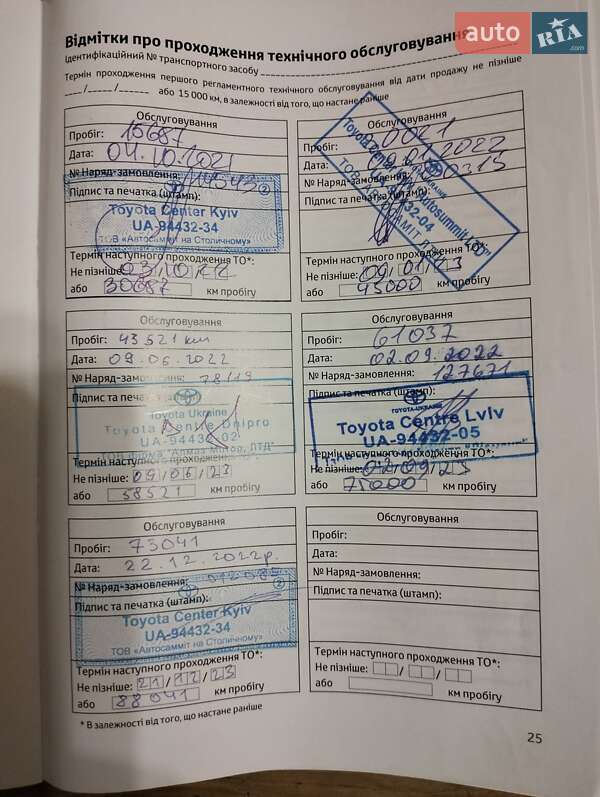 auto RIA .com
Відмітки про проходження технічного обслуговування
Ідентифікаційний № транспортного засобу
Термін проходження першого регламентного технічного обслуговування від дати продажу не пізніше
___/___/______ або 15 000 км, в залежності від того, що настане раніше
Обслуговування
Пробіг: 15687
Дата: 04.10.2021
№ Наряд-замовлення: 14543
Підпис та печатка (штамп):
2
Toyota Center Kyiv
UA-94432-34
ТОВ «Автосамміт на Столичному»
Термін наступного проходження ТО*:
Не пізніше: 03/10/22
або 30687 км пробігу
Обслуговування
Пробіг:
Дата: 2022
№ Наряд-замовлення: 00315
Підпис та печатка (штамп):
Toyota Center
Термін наступного проходження ТО*:
Не пізніше: 09/01/23
або 45000 км пробігу
Обслуговування
Пробіг: 43521 км
Дата: 09.06.2022
№ Наряд-замовлення: 78119
Підпис та печатка
Toyota Ukraine
Toyota Centre Dnipro
UA-94432-02
ТОВ фірма "Алмаз Мотор, ЛТД"
Термін наступного проходження
Не пізніше: 09/06/23
або 58521 км пробігу
Обслуговування
Пробіг: 61037
Дата: 02.09.2022
№ Наряд-замовлення: 127671
Підпис та печатка (штамп):
TOYOTA-UKRAINE
Toyota Centre Lviv
UA-94432-05
Термін наступного проходження ТО*:
Не пізніше: 02/09/23
або 75000 км пробігу
Обслуговування
Пробіг: 73041
Дата: 22.12.2022р.
№ Наряд-замовлення:
Підпис та печатка (штамп):
2
Toyota Center Kyiv
UA-94432-34
ТОВ «Автосамміт на Столичному»
Термін наступного проходження ТО*:
Не пізніше: 21/12/23
або 88041 км пробігу
Обслуговування
Пробіг:
Дата:
№ Наряд-замовлення:
Підпис та печатка (штамп):
Термін наступного проходження ТО*:
Не пізніше: / /
або км пробігу
* В залежності від того, що настане раніше
25